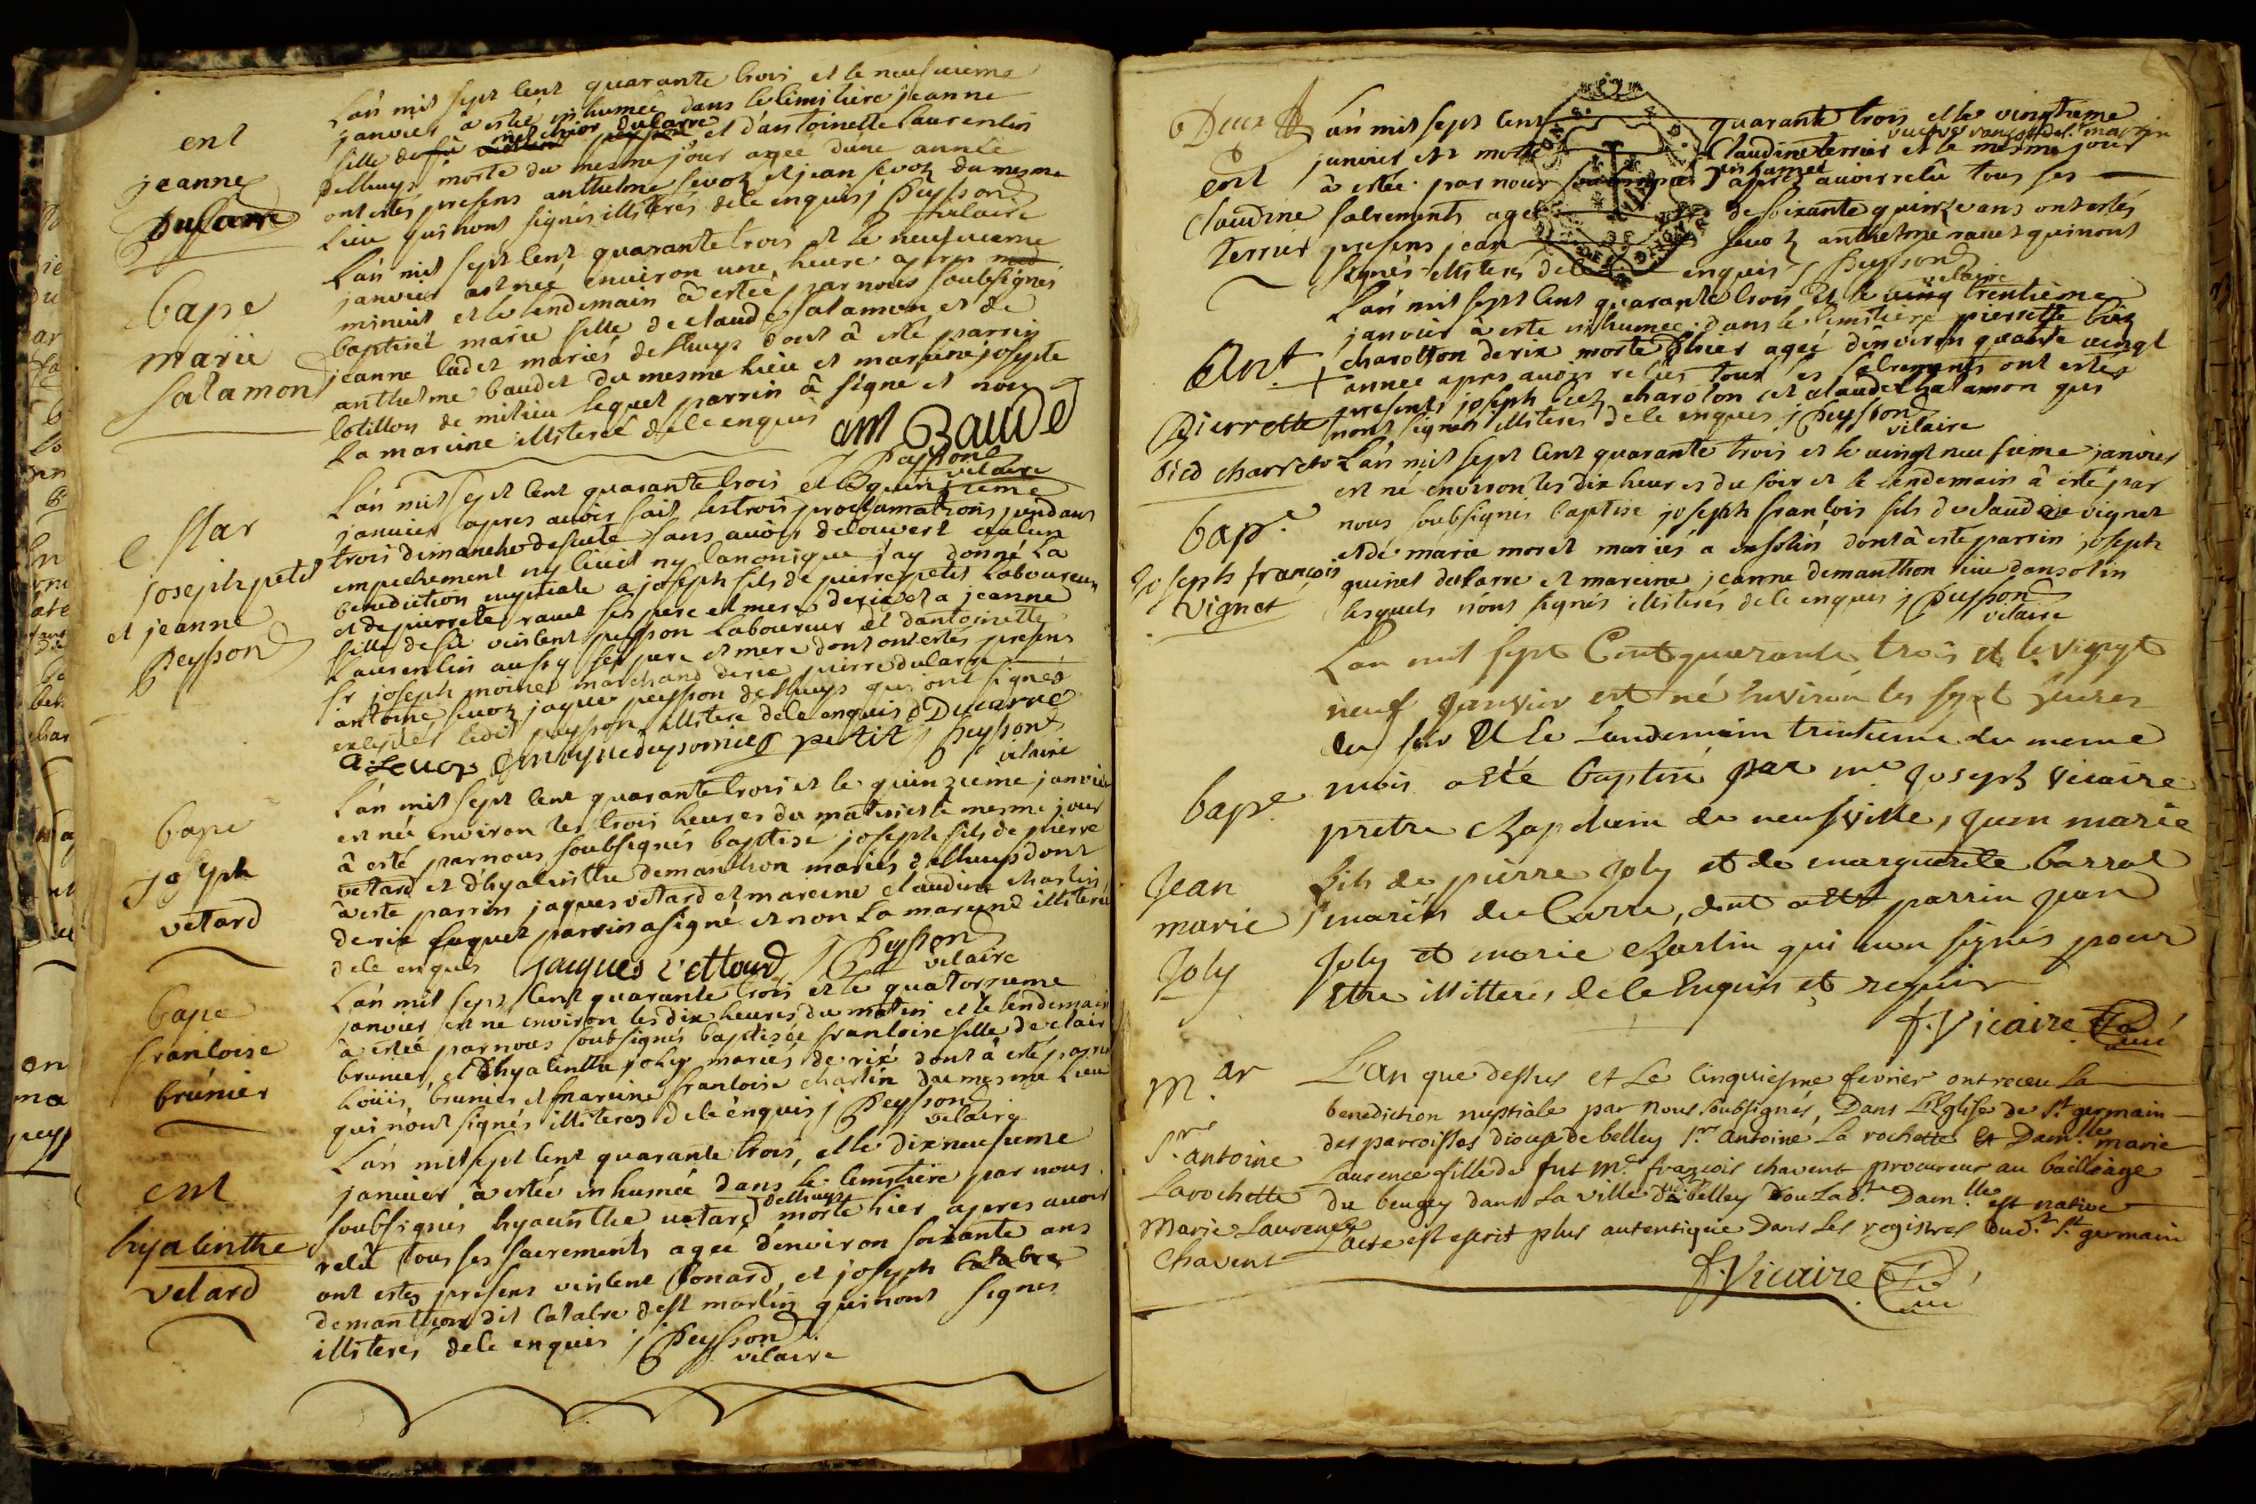 ent
jeanne
Ducarre
L'án mil sept cent quarante trois et le neufvieme
janvier à estée inhumée dans le cimitiere jeanne
fille de fû melchior ducarre et d'antoinette Laurentin
delhuys morte du mesme jour agée d'une année
ont estés presens anthelme sevoz et jean sevoz du mesme
Lieu qui nont signés illiterés de ce enquis j Peysson
vicaire
bape
marie
Salamon
L'án mil sept cent quarante trois et le neufvieme
janvier est née environ une heure apres
minuit et le lendemain à estée par nous soubsignés
baptiseé marie fille de claude salamon et de
jeanne cadet mariés delhuys dont à esté parrin
anthelme baudet du mesme lieu et mareine josepte
cotillon de milieu lequel parrin à signe et non
La mareine illitereé de ce enquis ant Baudet
j Peysson
vicaire
Star
joseph petit
et jeanne
Peysson
L'án mil sept cent quarante trois et le quinzieme
janvier apres avoir fait les trois proclamations pendant
trois dimanches de suite sans avoir decouvert aucun
empechement ny civil ny canonique j'ay donné La
benediction nuptiale a joseph fils de pierre petit Laboureur
et de pierrette ravet ses pere et mere de rix et a jeanne
fille de fû vincent peysson Laboureur et dantoinette
Laurentin aussy ses pere et mere dont ont estés presens
Sr joseph moinet marchand de rix pierre ducarre
antoine sevoz jaque peysson delhuys qui ont signés
excepter ledit peysson illitere de ce enquis P Ducarre
A Sevoz petit j Peysson
vicaire
bape
joseph
vetard
L'án mil sept cent quarante trois et le quinzieme janvier
est né environ les trois heures du matin et le mesme jour
à esté par nous soubsignés baptise joseph fils de pierre
vetard et d'hyacinthe demanthon mariés delhuys dont
à esté parrin jaques vetard et mareine claudine charlin
de rix lequel parrin a signe et non La mareine illitereé
de ce enquis jacques vettard j Peysson
vicaire
bape
francoise
brunier
L'án mil sept cent quarante trois et le quatorzieme
janvier est né environ les dix heures du matin et le lendemain
à estée par nous soubsignés baptiseé francoise fille de clair
brunier et d'hyacinthe joly mariés de rix dont à esté parrin
Loüis brunier et mareine francoise charlin du mesme Lieu
qui nont signés illiteres de ce enquis j Peysson
vicaire
ent
hyacinthe
vetard
L'án mil sept cent quarante trois, et le dixneufieme
janvier à estée inhumée dans le cimitiere par nous
soubsignés hyacinthe vetard delhuys morte hier apres avoir
recû tous ses sacrements ageé d'environ soixante ans
ont estes presens vincent bonard, et joseph
demanthon dit catabre de st martin qui nont signes
illiterés de ce enquis j Peysson
vicaire
Deux
ent
claudine
Terrier
L'án mil sept cent quarante trois et le vingtieme
janvier est morte Claudine terrier veuve de st martin et le mesme jour
à estée par nous soubsignés inhumeé aprez avoir recû tous ses
sacrements ageé de soixante quinze ans ont estés
presens jean sevoz anthelme ravet qui nont
signés illiterés de ce enquis j Peysson
vicaire
Ent.
Pierrette
biod charroton
L'án mil sept cent quarante trois et le trentieme
janvier à este inhumee dans le cimitiere pierrette
charotton de rix morte d'hier ageé d'environ quatre vingt
année apres avoir reçus tous ses sacrements ont estes
presents joseph charoton et claude salamon qui
nont signes illiteres de ce enquis j Peysson
vicaire
bape
joseph françois
vignet
L'án mil sept cent quarante trois et le vingt neufieme janvier
est né environ les dix heures du soir et le lendemain à esté par
nous soubsignes baptise joseph francois fils de claudine vignet
et de marie moret mariés a ensolin dont à este parrin joseph
quinet ducarre et mareine jeanne demanthon dansolin
lesquels nont signés illiterés de ce enquis j Peysson
vicaire
bape
jean
marie
joly
L'an mil sept Cent quarante trois et le vingt
neuf janvier est né Environ les sept heures
du soir Et le Lendemain trentieme du meme
mois a eté baptisé par mre joseph vicaire
pretre chapelain de neufville, jean marie
fils de pierre joly et de marguerite barral
mariés du Carre, dont a été parrin jean
joly et marie charlin qui non signés pour
Etre illitterés de ce Enquis et requis
f. Vicaire Curé
M.ar
Sr antoine
Larochette
Marie Laurence
Chavent
L'an que dessus et Le Cinquiesme fevrier ont receu La
benediction nuptiale par Nous soubsignés, Dans L'Eglise de St germain
des parroisses diocese de belley Sr antoine La rochette Et Damlle marie
Laurence fille de fut Me françois chavent procureur au bailliage
du beugey dans La ville de belley d'ou Lade Damlle est native
L'acte est escrit plus autentique Dans Les registres dud. St germain
f. Vicaire Curé